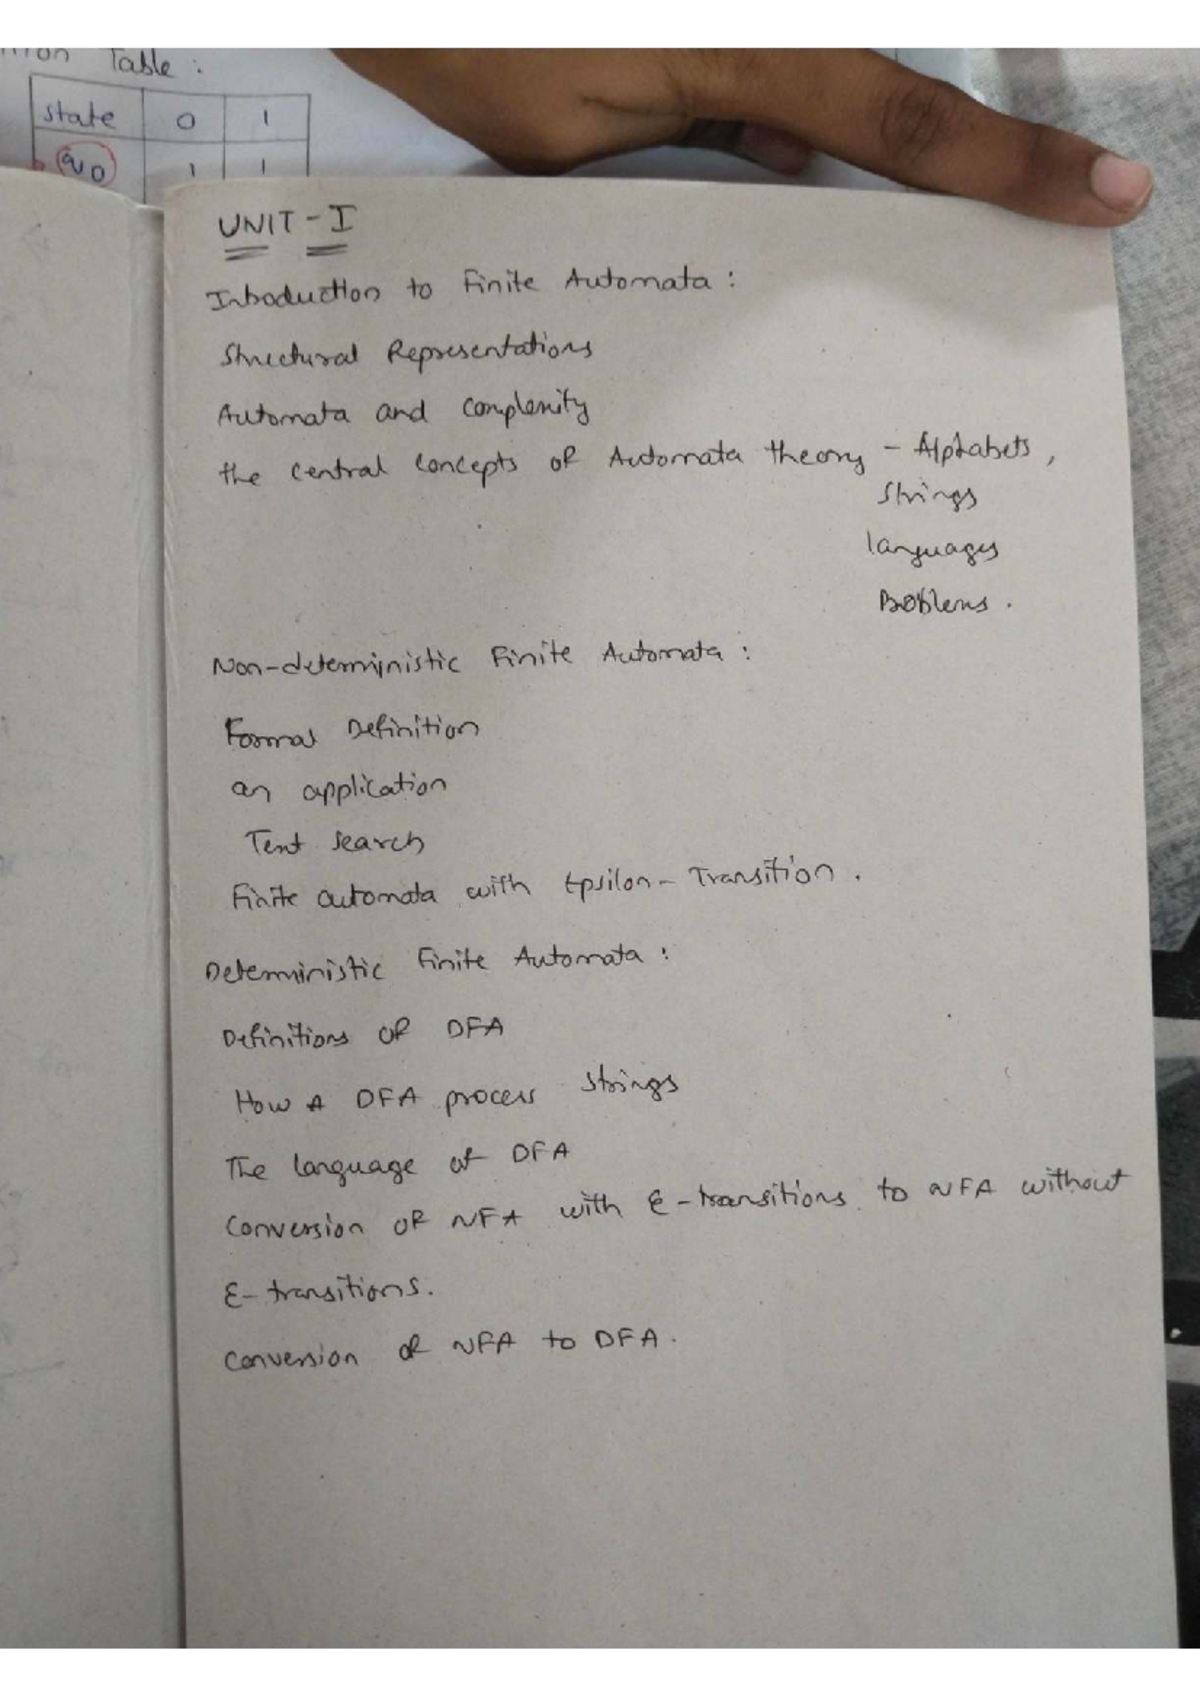 Table :
state 0 1
q0 1 1
UNIT - I
Introduction to Finite Automata :
Structural Representations
Automata and Complexity
the central concepts of Automata theory - Alphabets ,
Strings
languages
Problems .
Non-deterministic Finite Automata :
Formal Definition
an application
Text search
Finite automata with Epsilon - Transition .
Deterministic Finite Automata :
Definitions of DFA
How A DFA process strings
The language of DFA
Conversion of NFA with ε - transitions to NFA without
ε - transitions.
Conversion of NFA to DFA .